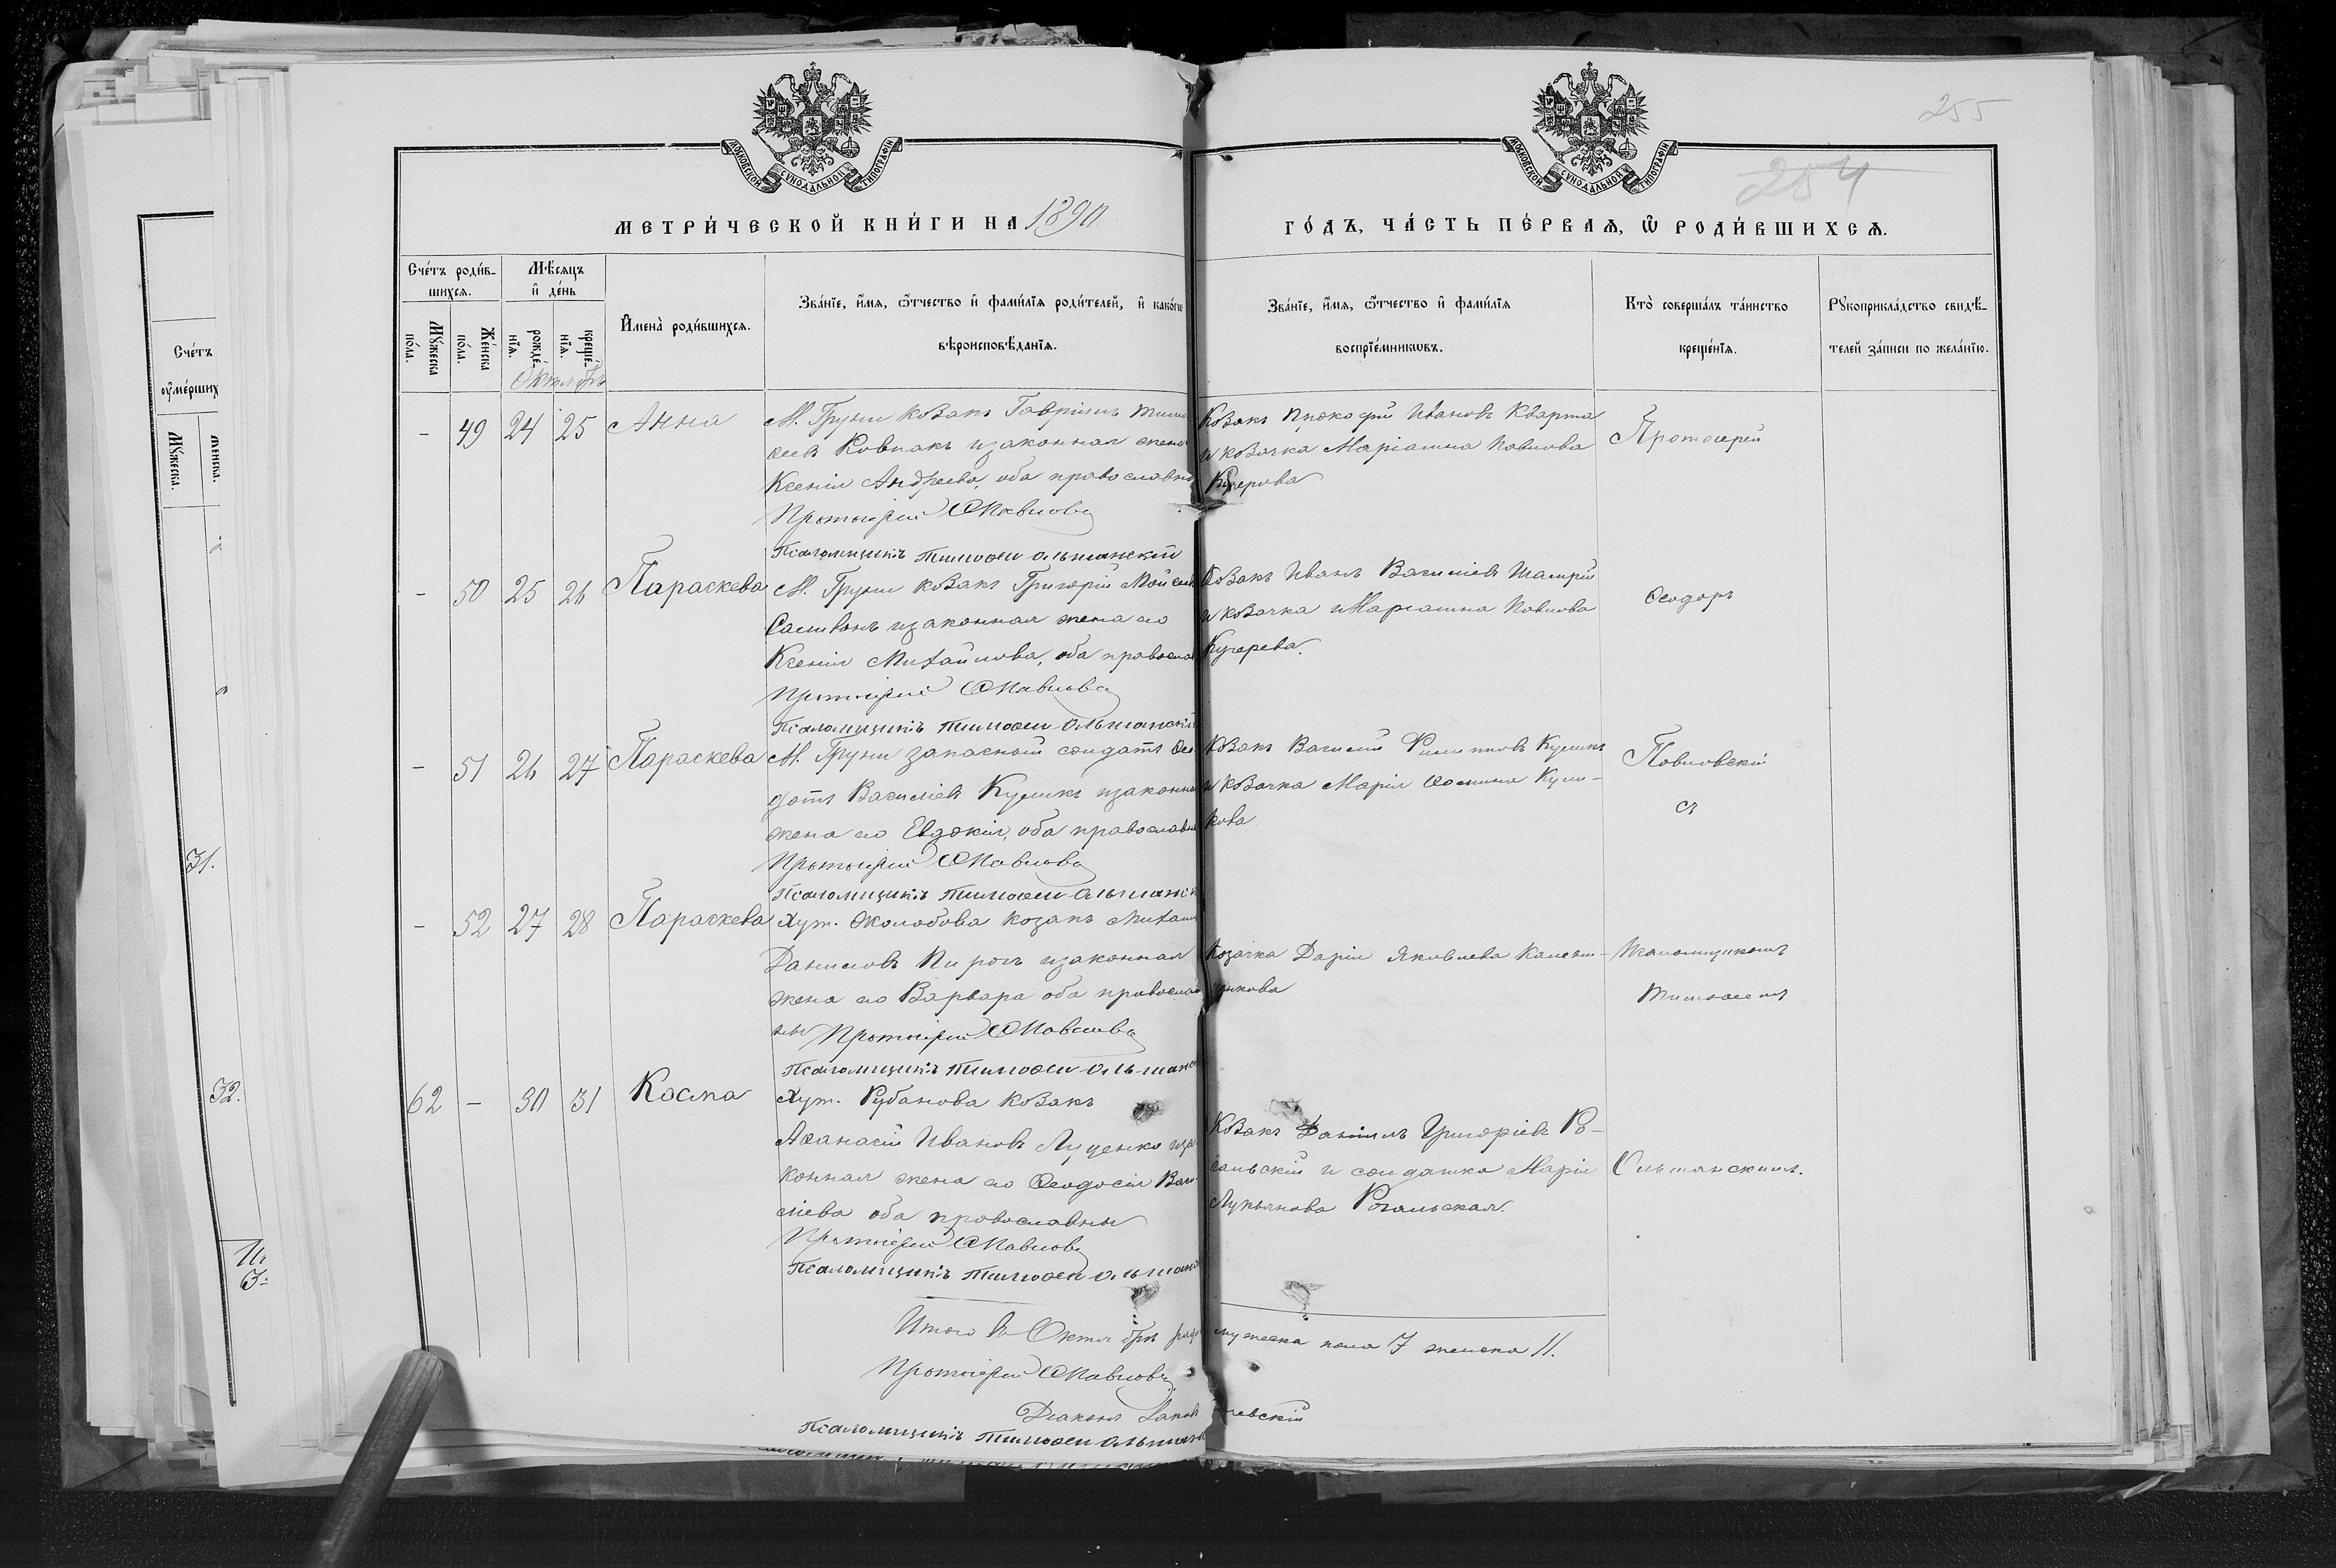 255
254
МОСКОВСКОЙ СУНОДАЛЬНОЙ ТИПОГРАФІИ
МОСКОВСКОЙ СУНОДАЛЬНОЙ ТИПОГРАФІИ
МЕТРИ́ЧЕСКОЙ КНИ́ГИ НА 1890
ГО́ДЪ, ЧА́СТЬ ПЕ́РВАѦ, Ѡ РОДИ́ВШИХСѦ.
Сче́тъ роди́в-
шихсѧ.
Мѣ́сѧцъ
и҆ де́нь
Мꙋ́жеска
по́ла.
Же́нска
по́ла.
рожде́-
нїѧ.
креще́-
нїѧ.
И҆мена̀ роди́вшихсѧ.
Зва́нїе, и҆́мѧ, ѻ҆́тчество и҆ фами́лїѧ роди́телей, и҆ како́гѡ
вѣроисповѣ́данїѧ.
Зва́нїе, и҆́мѧ, ѻ҆́тчество и҆ фами́лїѧ
воспрїе́мникѡвъ.
Кто̀ соверша́лъ та́инство
креще́нїѧ.
Рꙋкоприкла́дство свидѣ́-
телей за́писи по жела́нїю.
Октябрь
- 49 24 25 Анна
М. Груни козакъ Гавріилъ Тимо
еевъ Ровнакъ и законная жена
Ксенія Андреева, оба православн
Протоіерей Ѳ Павловс
Псаломщикъ Тимоѳей Ольшанскій
Козакъ Прокофій Ивановъ Кварта
и козачка Маріанна Павлова
Кучерова
Протоіерей
- 50 25 26 Параскева
М. Груни козакъ Григорій Мойсеев
Саливонъ и законная жена его
Ксенія Михайлова, оба православ
Протоіерей Ѳ Павловс
Псаломщикъ Тимоѳей Ольшанскій
Козакъ Иванъ Василіевъ
и козачка Маріанна Павлова
Кучерева.
Ѳеодоръ
- 51 26 27 Параскева
М. Груни запасный солдатъ Ѳео
дотъ Василіевъ Куликъ и законна
жена его Евдокія, оба православн
Протоіерей Ѳ Павловс
Псаломщикъ Тимоѳей Ольшанск
Козакъ Василій Филипповъ Куликъ
и козачка Марія Ѳомина Кули-
кова
Павловскій
съ
- 52 27 28 Параскева
Хут. Околобова козакъ Михаил
Даниловъ Пирогъ и законная
жена его Варвара оба православ
ны Протоіерей Ѳ Павловс
Псаломщикъ Тимоѳей Ольшанс
Козачка Дарія Яковлева Камен-
щикова
Псаломщикомъ
Тимоѳеемъ
62 - 30 31 Косма
Хут. Рубанова козакъ
Аѳанасій Ивановъ Луценко и за
конная жена его Ѳеодосія Васи-
ліева оба православны
Протоіерей Ѳ Павловс
Псаломщикъ Тимоѳей Ольшанс
Козакъ Даніилъ Григоріевъ Ро-
гальскій и солдатка Марія
Лукьянова Рогальская.
Ольшанскимъ.
Итого въ Октябрѣ роди мужеска пола 7 женска 11.
Протоіерей Ѳ Павловс
Діаконъ
Псаломщикъ Тимоѳей Ольшанс
Сче́тъ
ᲂу҆ме́рших
Мꙋ́жеска.
31.
32.